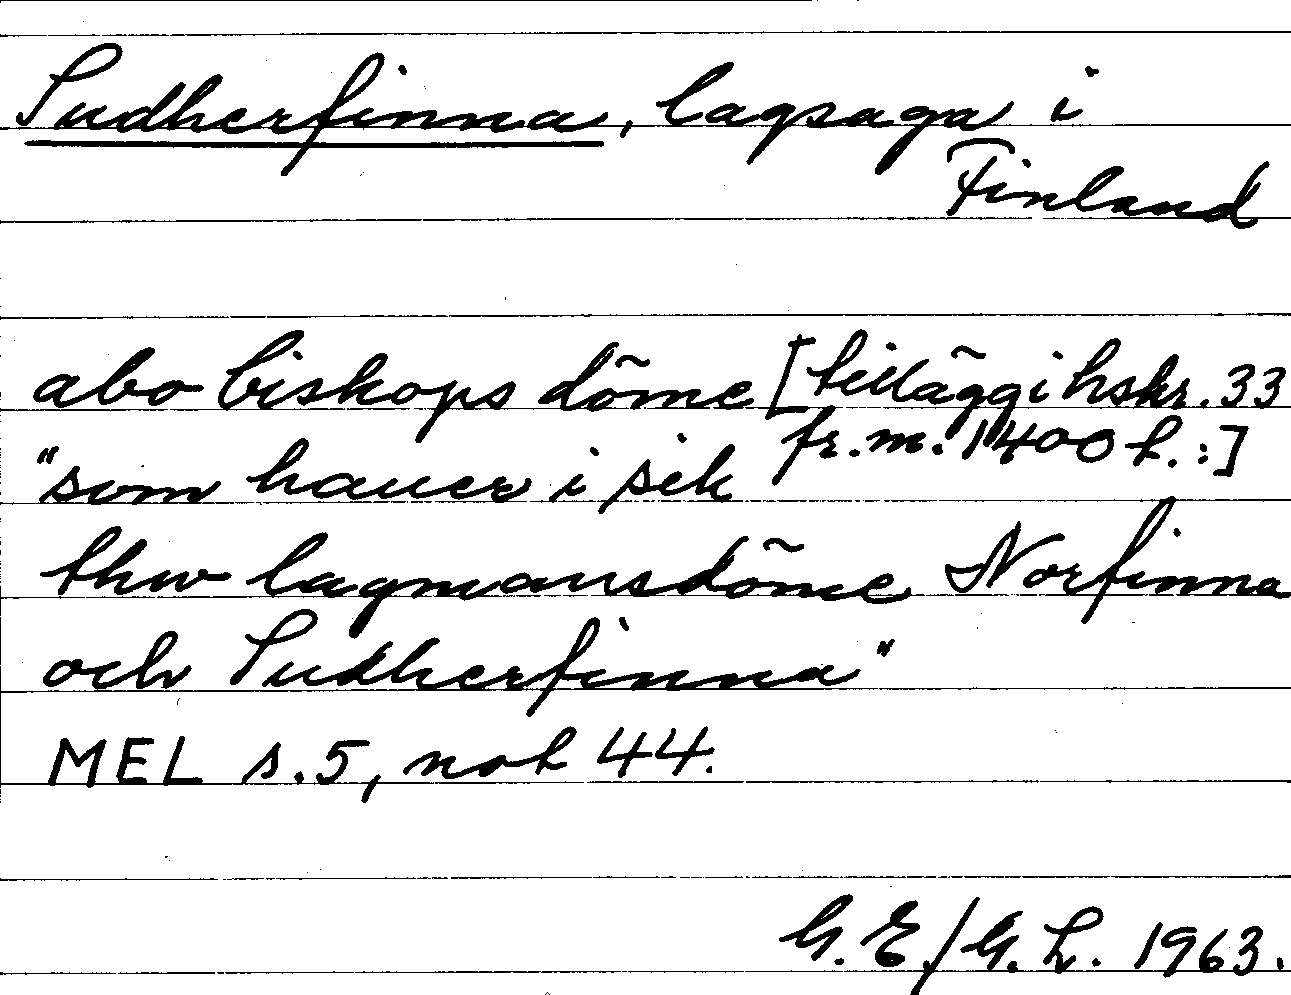 Sudherfinna, lagsaga i
Finland
abo biskops döme [tillägg i hskr. 33
fr. m. 1400 t.:]
"som hauer i sik
thw lagmansdöme Norfinna
och Sudherfinna"
MEL s. 5, not 44.
G.E./G.L. 1963.